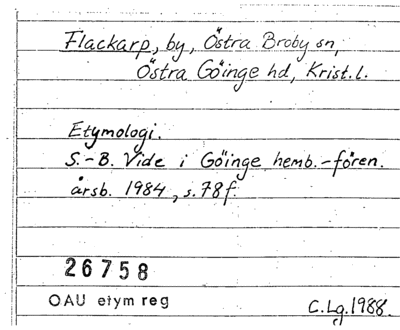 Flackarp, by, Östra Broby sn,
Östra Göinge hd, Krist. l.
Etymologi.
S.-B. Vide i Göinge hemb.-fören.
årsb. 1984, s. 78 f
26758
OAU etym reg
C.Lg. 1988.